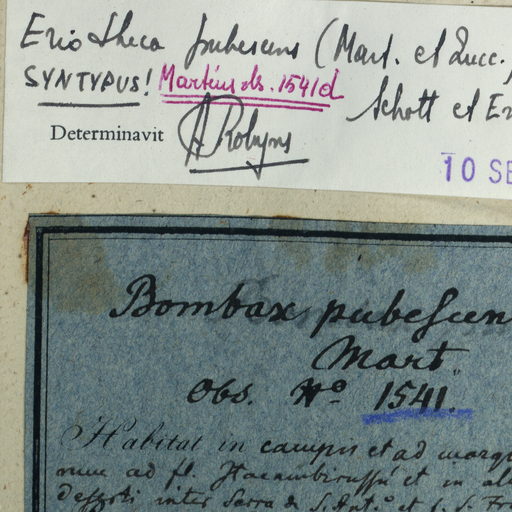 Eriotheca pubescens (Mart. et Zucc.)
SYNTYPUS! Martius obs. 1541d
Schott et En
Determinavit A Robyns
10 SE
Bombax pubescen
Mart.
Obs. No 1541.
Habitat in campis et ad marg
ad fl. et in al
deserti inter Serra de S. Ant.º et